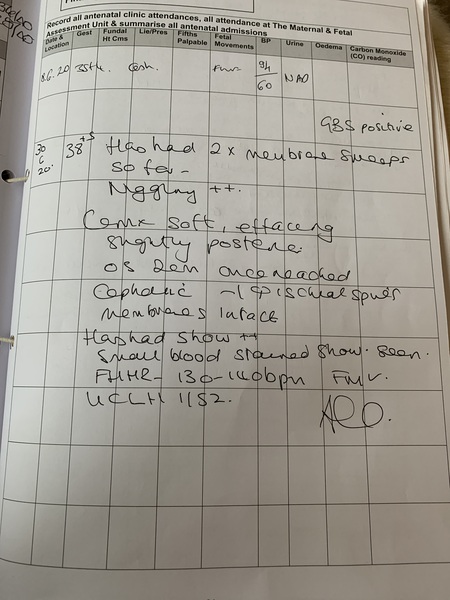 Record all antenatal clinic attendances, all attendance at The Maternal & Fetal
Assessment Unit & summarise all antenatal admissions
Date & Location Gest Fundal Ht Cms Lie/Pres Fifths Palpable Fetal Movements BP Urine Oedema Carbon Monoxide (CO) reading
8.6.20 35+4 Ceph. FMF 94/60 NAD
GBS positive
30 6 20 38+5 Has had 2x membrane sweeps
so far -
Niggling ++.
Cervix soft, effacing
slightly posterior
os 2cm once reached
Cephalic -1 sp ischial spines
membranes intact
Has had show ++
Small blood stained show. seen.
FHHR - 130-140bpm FMV.
UCLH 1152.